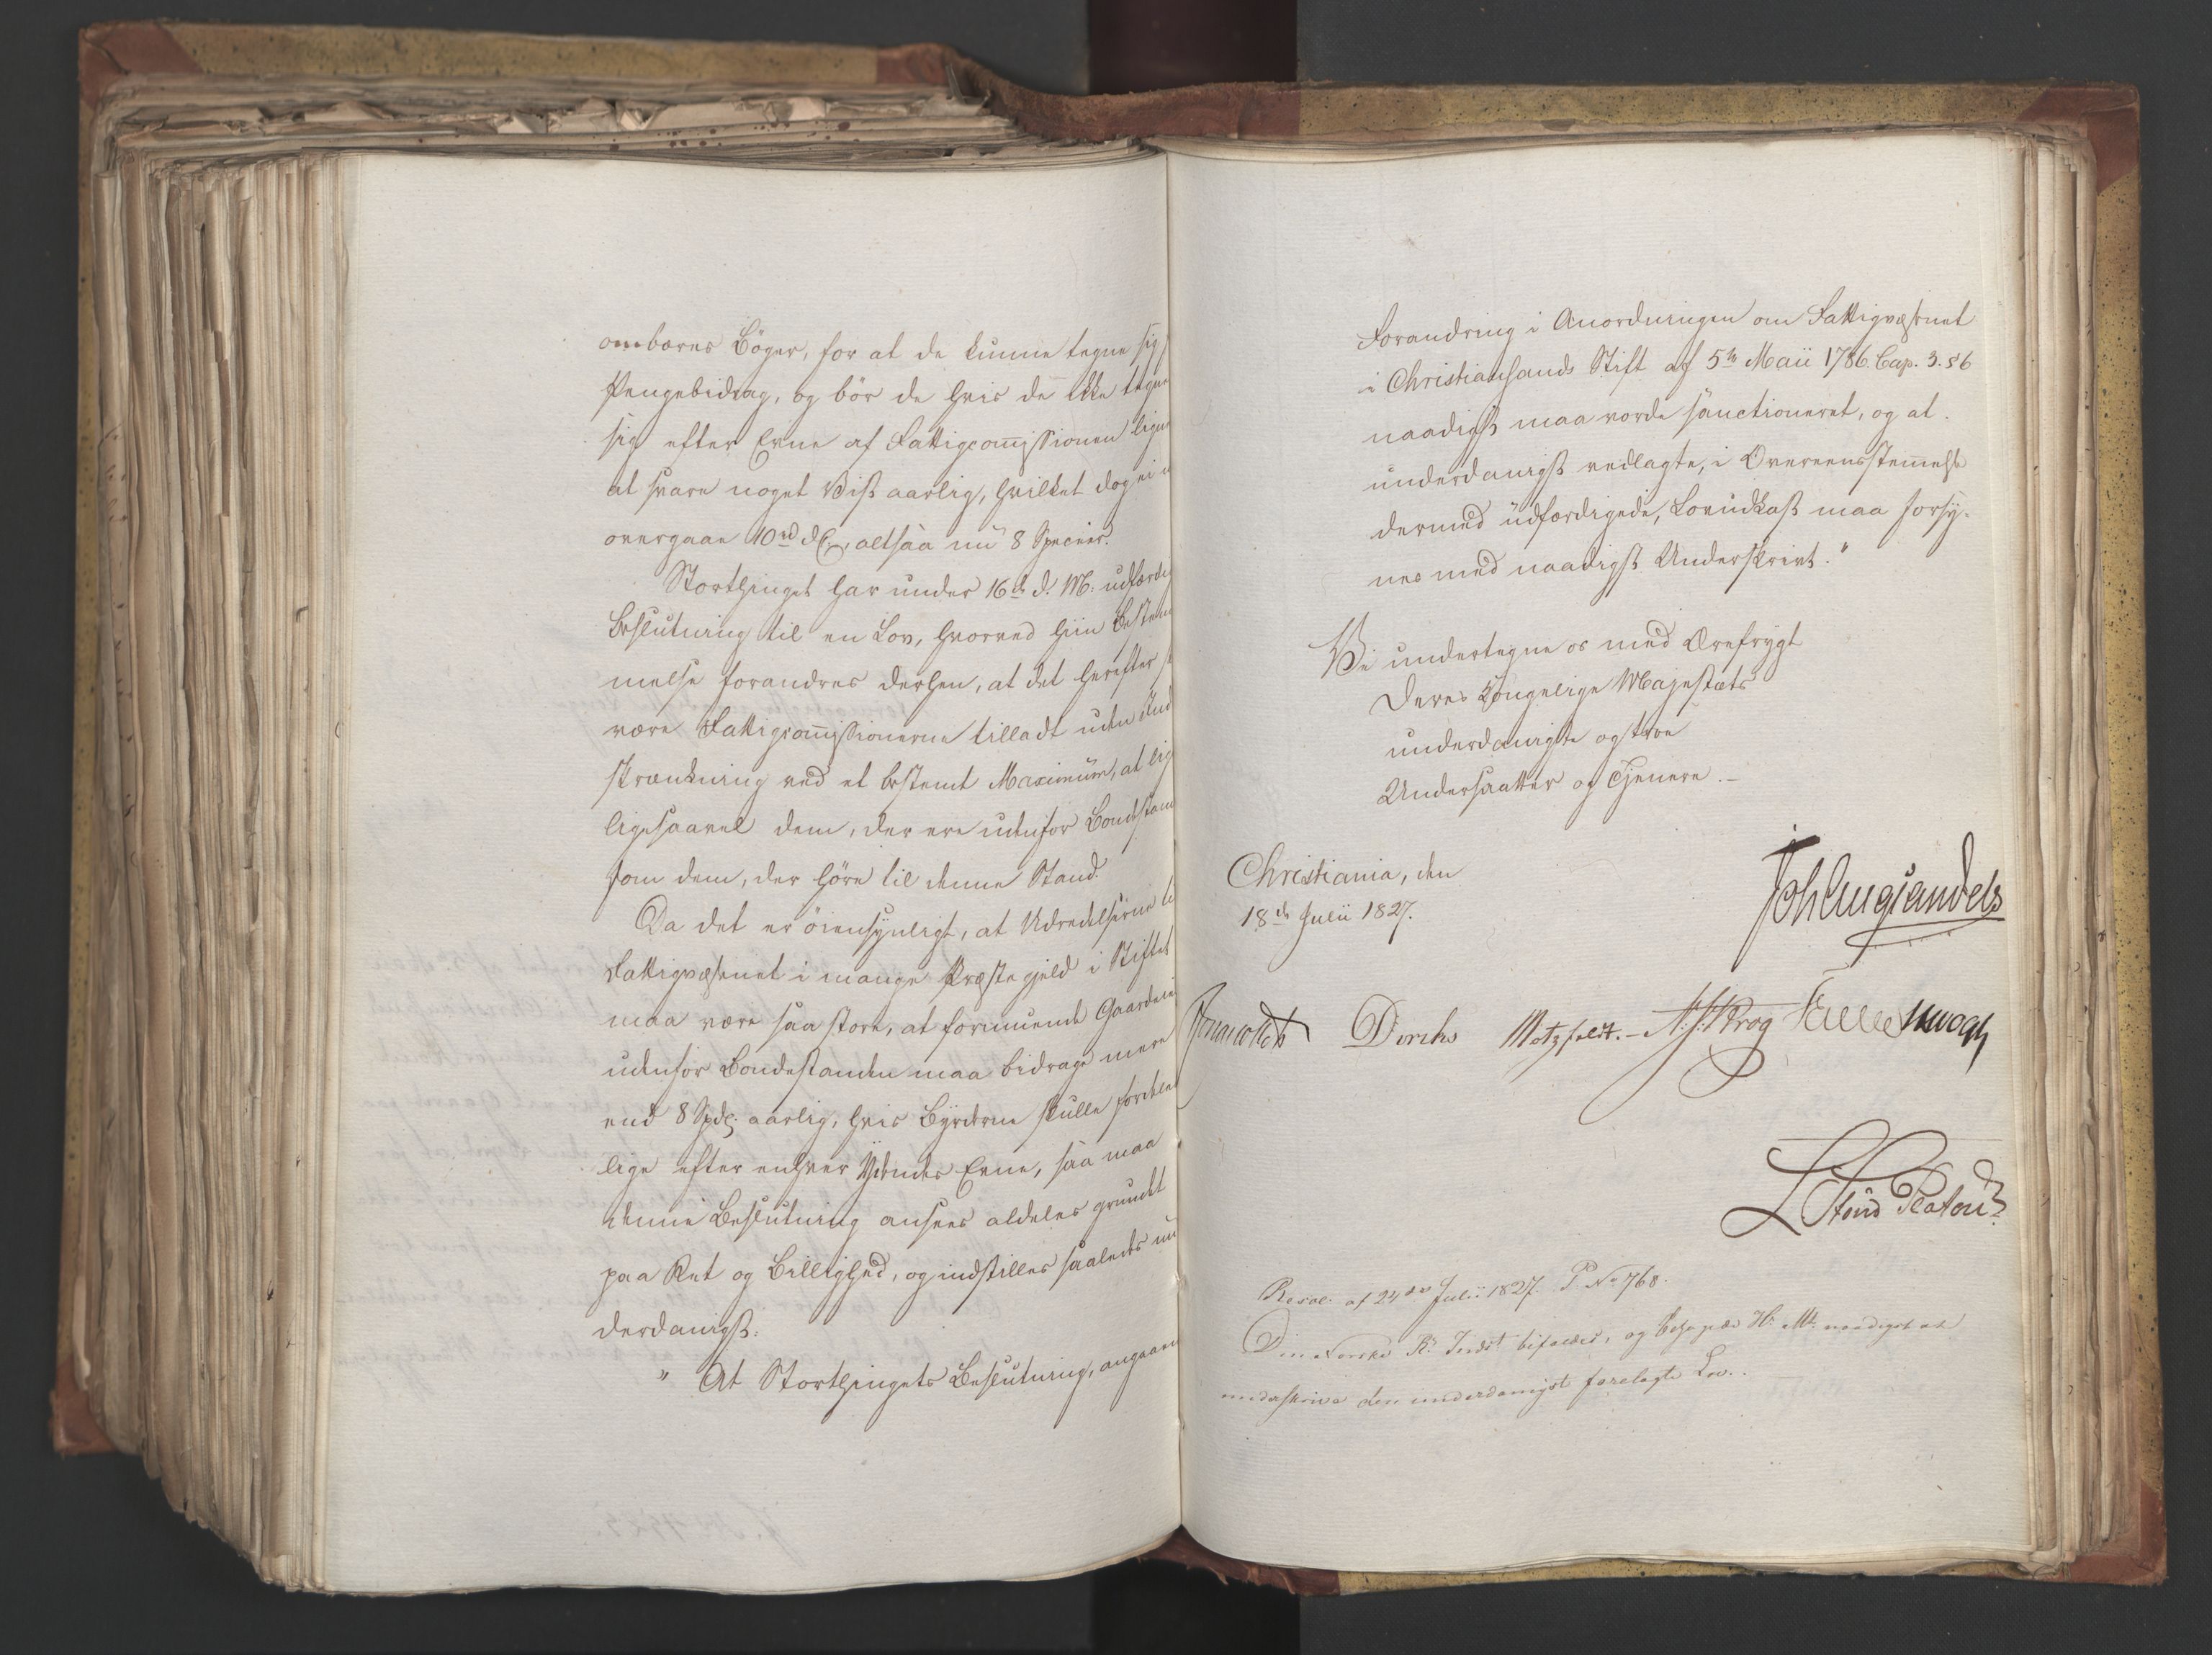 ombæres Bøger, for at de kunne tegne sig
Pengebidrag, og bör de hvis de ikke tegne
sig efter Evne af Fattigcommissionen ligne
at svare noget Vist aarlig, hvilket dog ei
overgaae 10 rd altsaa nu 8 Species.
Storthinget har under 16de d. M. udfærdi
Beslutning til en Lov, hvorved hiin Bestem
melse forandres derhen, at det herefter
være Fattigcommissionerne tilladt uden Ind
skrænkning ved et bestemt Maximum, at lig
ligesaavel dem, der ere udenfor Bondestand
som dem, der høre til denne Stand.
Da det er öiensynligt, at Udredelserne ti
Fattigvæsenet i mange Præstegjeld i Stiftet
maa være saa store, at formuende Gaardeie
udenfor Bondestanden maa bidrage mere
end 8 Spd. aarlig, hvis Byrderne skulle fordeles
lige efter enhver Ydendes Evne, saa maa
denne Beslutning ansees aldeles grundet
paa Ret og Billighed, og indstilles saaledes un
derdanigst:
" At Storthingets Beslutning, angaaen
Forandring i Anordningen om Fattigvæsenet
i Christiansands Stift af 5te Maii 1786 Cap. 3. § 6
naadigst maa vorde sanctioneret, og at
underdanigst vedlagte, i Overeensstemmelse
dermed udfærdigede, Lovudkast maa forsy-
nes med naadigst Underskrivt."
Vi undertegne os med Ærefrygt
Deres Kongelige Majestæts
underdanigste og troe
Undersaatter og Tjenere.
Christiania, den
18de Julii 1827.
Diriks Motzfeldt. Krog
Resol. af 24de Julii 1827. P. No 768.
Den Norske R. Indst. bifaldes, og behagede H. Mt. naadigst at
underskrive den underdanigst forelagte Lov.